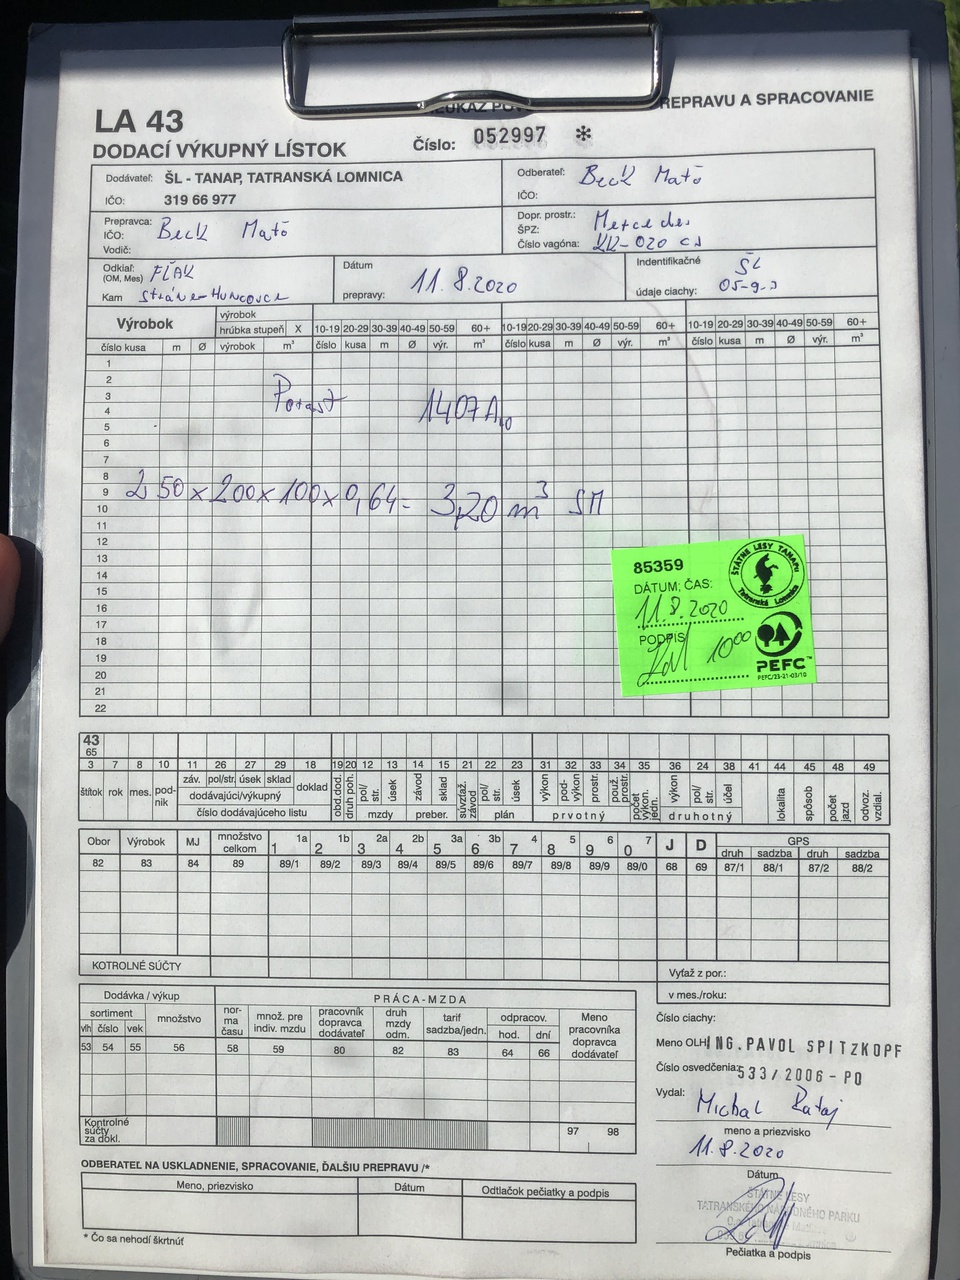 REPRAVU A SPRACOVANIE
LA 43
DODACÍ VÝKUPNÝ LÍSTOK
Číslo: 052997 *
Dodávateľ: ŠL - TANAP, TATRANSKÁ LOMNICA
IČO: 319 66 977
Odberateľ: Beck Maťo
IČO:
Prepravca: Beck Maťo
IČO:
Vodič:
Dopr. prostr.: Mercedes
ŠPZ:
Číslo vagóna: KK-020 CJ
Odkiaľ: FĽAK
(OM, Mes)
Kam Stráne-Huncovce
Dátum
prepravy: 11.8.2020
Indentifikačné ŠL
údaje ciachy: 05-9-
Výrobok
výrobok
hrúbka stupeň X 10-19 20-29 30-39 40-49 50-59 60+ 10-19 20-29 30-39 40-49 50-59 60+ 10-19 20-29 30-39 40-49 50-59 60+
číslo kusa m Ø výrobok m³ číslo kusa m Ø výr. m³ číslo kusa m Ø výr. m³ číslo kusa m Ø výr. m³
1
2
3
Porast 1407A
4
5
6
7
8
250×200×100×0,64= 3,20 m³ SM
9
10
11
12
13
14
15
16
17
18
19
20
21
22
85359
DÁTUM; ČAS:
11.8.2020
PODPIS
10⁰⁰
ŠTÁTNE LESY TANAPu
Tatranská Lomnica
PEFC™
PEFC/23-21-03/10
43
65
3 7 8 10 11 26 27 29 18 19 20 12 13 14 15 21 22 23 31 32 33 34 35 36 24 38 41 44 45 48 49
štítok rok mes. pod-nik záv. pol/str. úsek sklad doklad obd.dod. druh poh. pol/str. úsek závod sklad súvzťaž. závod pol/str. úsek výkon pod-výkon prostr. použ. prostr. počet výkon. jedn. výkon pol/str. účel lokalita spôsob počet jazd odvoz. vzdial.
dodávajúci/výkupný
číslo dodávajúceho listu mzdy preber. plán prvotný druhotný
Obor Výrobok MJ množstvo celkom 1 1a 2 1b 3 2a 4 2b 5 3a 6 3b 7 4 8 5 9 6 0 7 J D GPS
druh sadzba druh sadzba
82 83 84 89 89/1 89/2 89/3 89/4 89/5 89/6 89/7 89/8 89/9 89/0 68 69 87/1 88/1 87/2 88/2
KOTROLNÉ SÚČTY
Vyťaž z por.:
v mes./roku:
Dodávka / výkup
PRÁCA-MZDA
sortiment množstvo nor-ma času množ. pre indiv. mzdu pracovník dopravca dodávateľ druh mzdy odm. tarif sadzba/jedn. odpracov. Meno pracovníka dopravca dodávateľ
vlh číslo vek hod. dní
53 54 55 56 58 59 80 82 83 64 66
Kontrolné súčty za dokl.
97 98
Číslo ciachy:
Meno OLH: ING.PAVOL SPITZKOPF
Číslo osvedčenia: 533/2006-PO
Vydal: Michal Rataj
meno a priezvisko
11.8.2020
Dátum
ŠTÁTNE LESY
TATRANSKÉHO NÁRODNÉHO PARKU
Pečiatka a podpis
ODBERATEĽ NA USKLADNENIE, SPRACOVANIE, ĎALŠIU PREPRAVU /*
Meno, priezvisko Dátum Odtlačok pečiatky a podpis
* Čo sa nehodí škrtnúť